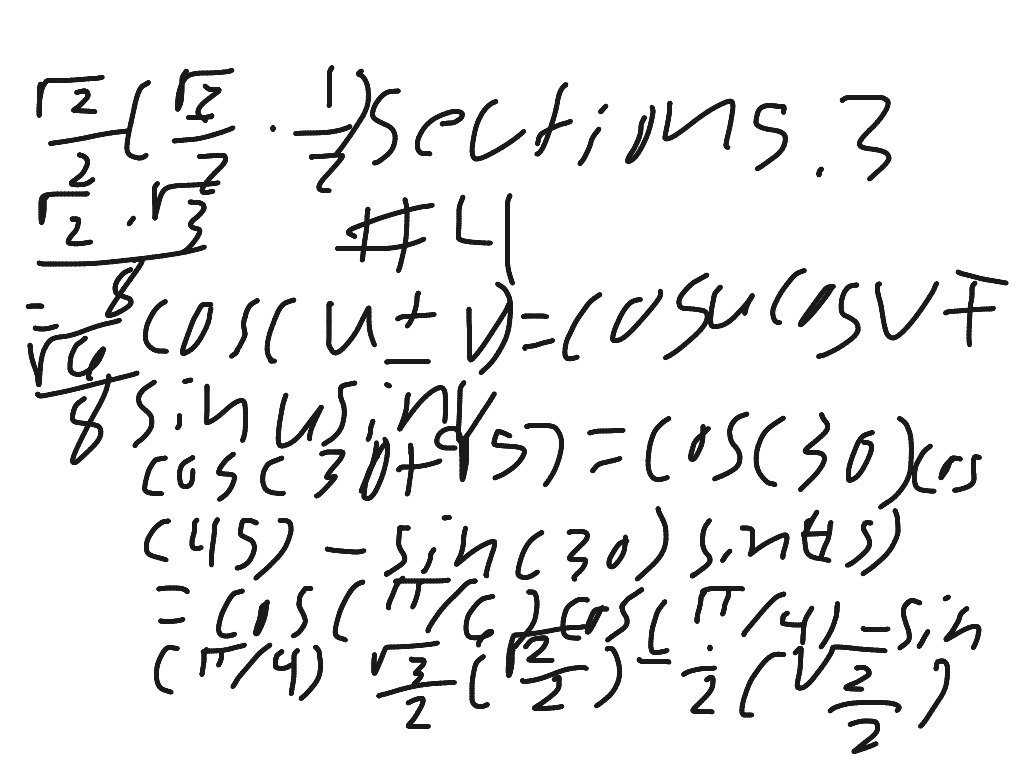 √2/2 (√3/2 · 1/2) Section 5.3
√2 · √3 / 8 #41
= √6/8 cos(u ± v) = cos u cos v ∓
sin u sin v
cos(30+45) = cos(30)cos
(45) - sin(30) sin(45)
= cos(π/6) cos(π/4) - sin
(π/4) √3/2 (√2/2) - 1/2 (√2/2)